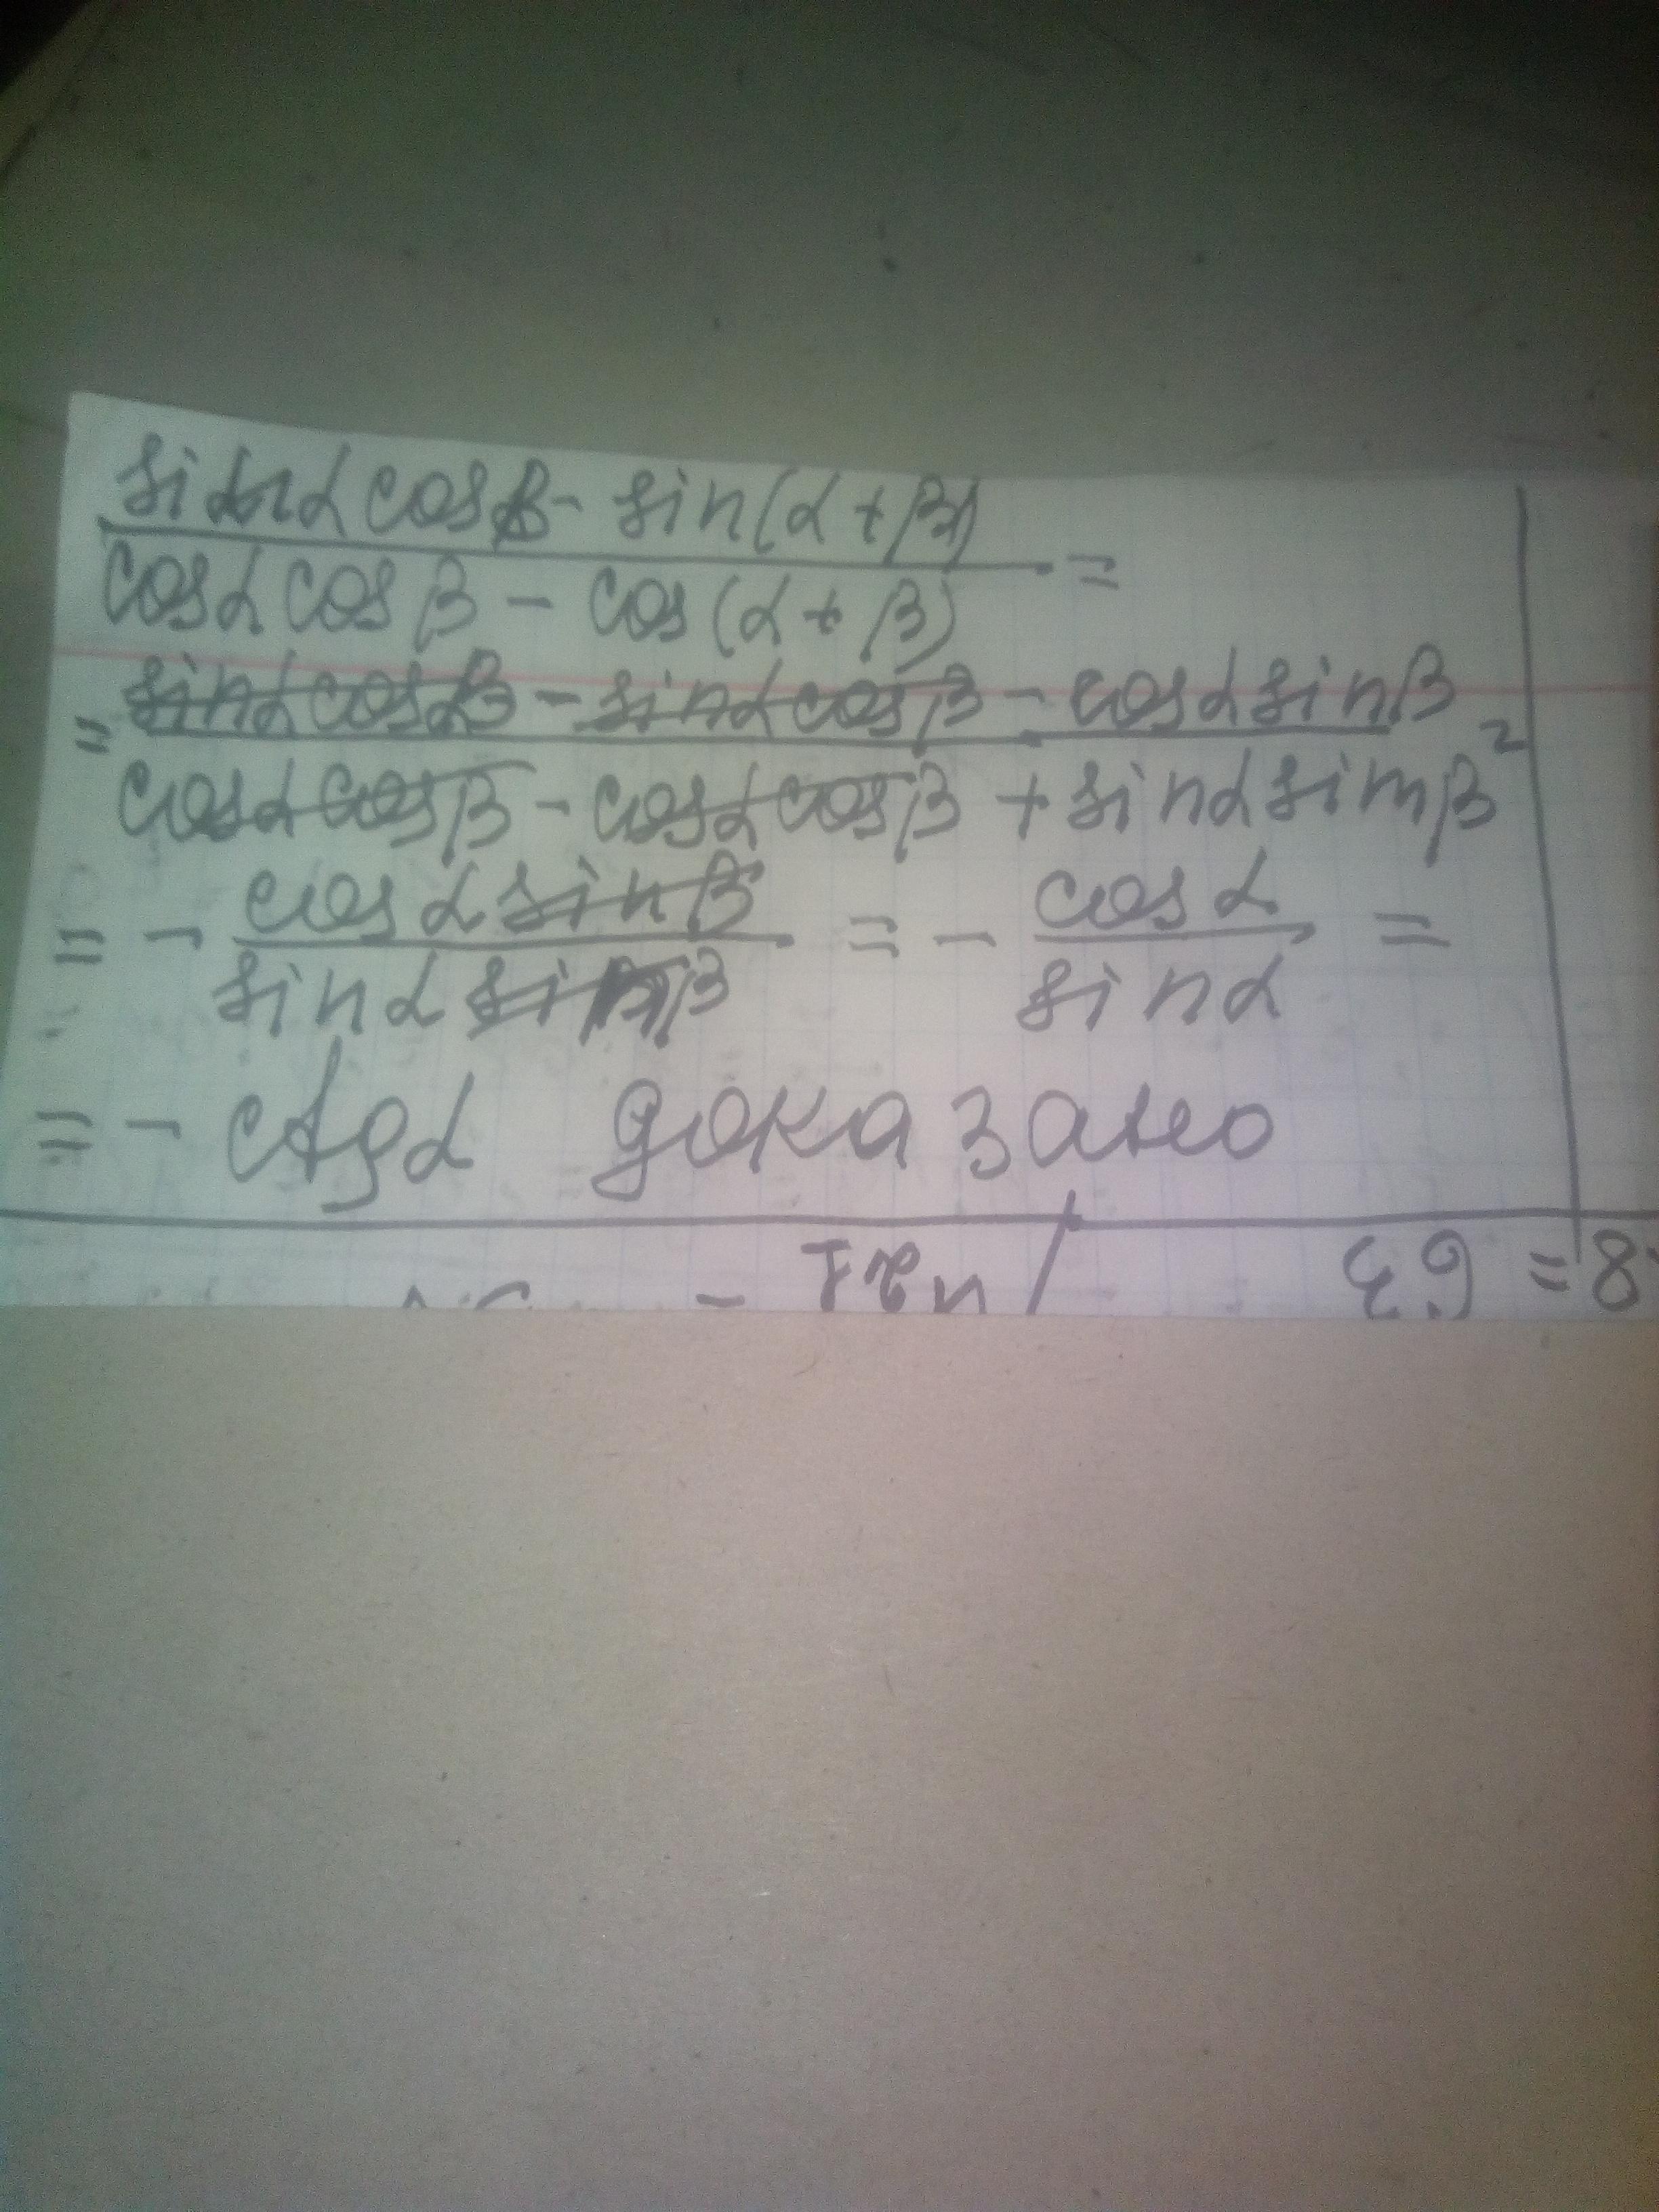 sinα cosβ - sin(α + β)
cosα cosβ - cos(α + β) =
= sinα cosβ - sinα cosβ - cosα sinβ =
cosα cosβ - cosα cosβ + sinα sinβ
= - cosα sinβ = - cosα =
sinα sinβ sinα
= - ctgα доказано